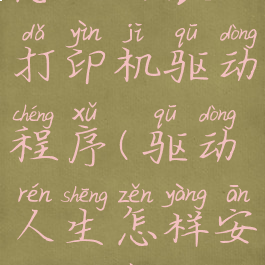 dǎ yìn jī qū dòng
打印机驱动
chéng xǔ qū dòng
程序(驱动
rén shēng zěn yàng ān
人生怎样安